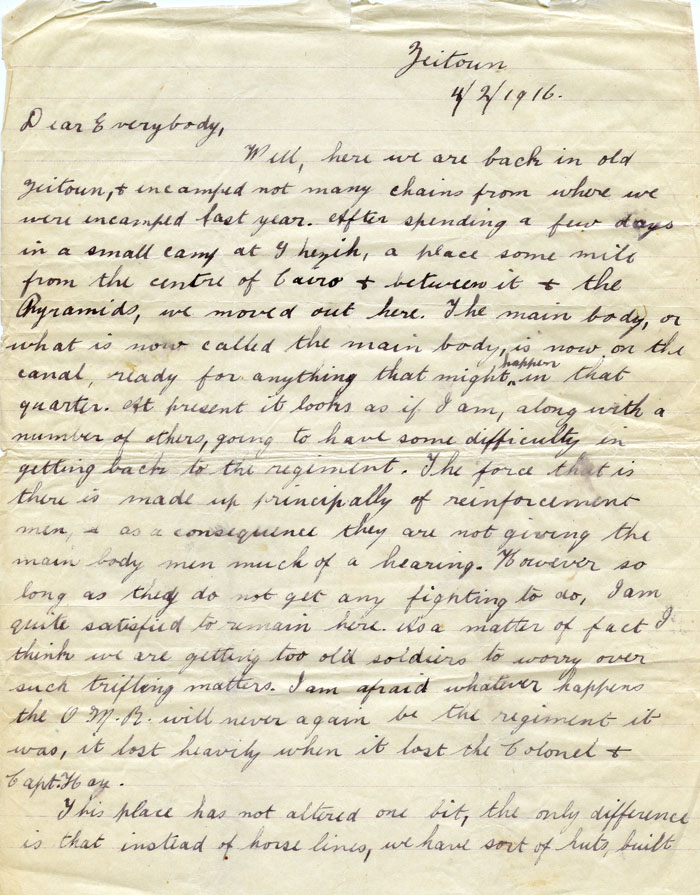 Zeitoun
4/2/1916.
Dear Everybody,
Well, here we are back in old
Zeitoun, & incamped not many chains from where we
were incamped last year. After spending a few days
in a small camp at Ghezih, a place some mile
from the centre of Cairo & between it & the
Pyramids, we moved out here. The main body, or
what is now called the main body, is now on the
canal, ready for anything that might happen in that
quarter. At present it looks as if I am, along with a
number of others, going to have some difficulty in
getting back to the regiment. The force that is
there is made up principally of reinforcement
men, & as a consequence they are not giving the
main body men much of a hearing. However so
long as they do not get any fighting to do, I am
quite satisfied to remain here. As a matter of fact I
think we are getting too old soldiers to worry over
such trifling matters. I am afraid whatever happens
the O.M.R. will never again be the regiment it
was, it lost heavily when it lost the Colonel &
Capt. Hay.
This place has not altered one bit, the only difference
is that instead of horse lines, we have sort of huts, built